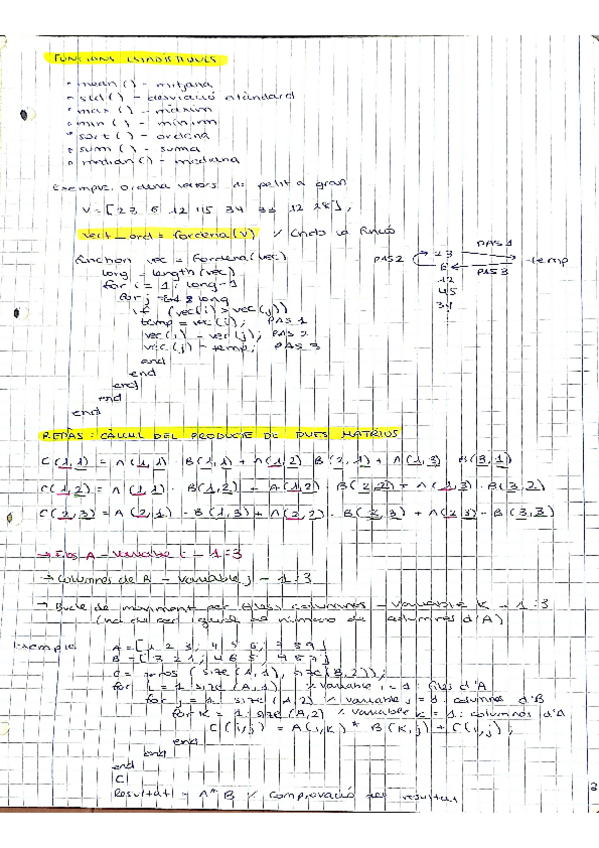 FUNCIONS ESTADÍSTIQUES
mean() - mitjana
std() - desviació estàndard
max() - màxim
min() - mínim
sort() - ordena
sum() - suma
median() - mediana
Exemple: ordena vectors de petit a gran
V = [23 6 12 45 34 12 18];
vect_ord = fordena(v) % Crida la funció
function vec = fordena(vec)
long = length(vec)
for i = 1: long-1
for j = long
if (vec(i) > vec(j))
temp = vec(i); PAS 1
vec(i) = vec(j); PAS 2
vec(j) = temp; PAS 3
end
end
end
end
end
PAS 1
PAS 2
23
temp
6
PAS 3
12
45
34
REPÀS: CÀLCUL DEL PRODUCTE DE DUES MATRIUS
C(1,1) = A(1,1) · B(1,1) + A(1,2) · B(2,1) + A(1,3) · B(3,1)
C(1,2) = A(1,1) · B(1,2) + A(1,2) · B(2,2) + A(1,3) · B(3,2)
C(2,3) = A(2,1) · B(1,3) + A(2,2) · B(2,3) + A(2,3) · B(3,3)
→ Files A - variable i - 1:3
→ Columnes de B - variable j - 1:3
→ Bucle de moviment per files i columnes - variable K - 1:3
(ha de ser igual al número de columnes d'A)
Exemple
A = [1 2 3; 4 5 6; 7 8 9]
B = [7 2 1; 4 6 5; 4 5 7]
C = zeros(size(A,1), size(B,2));
for i = 1: size(A,1) % variable i = 1: files d'A
for j = 1: size(A,2) % variable j = 1: columnes d'B
for K = 1: size(A,2) % variable K = 1: columnes d'A
C(i,j) = A(i,K) * B(K,j) + C(i,j);
end
end
end
C
Resultat1 = A*B % Comprovació del resultat